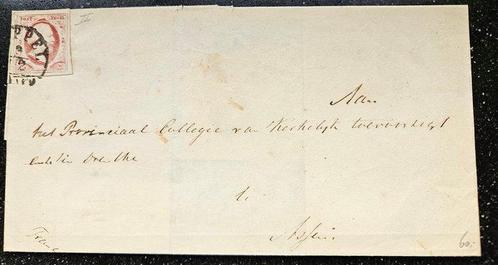 PPEL
Aan
het Provinciaal Collegie van Kerkelijk toevoorzigt
in Drenthe
te
Assen
Franco
60.-